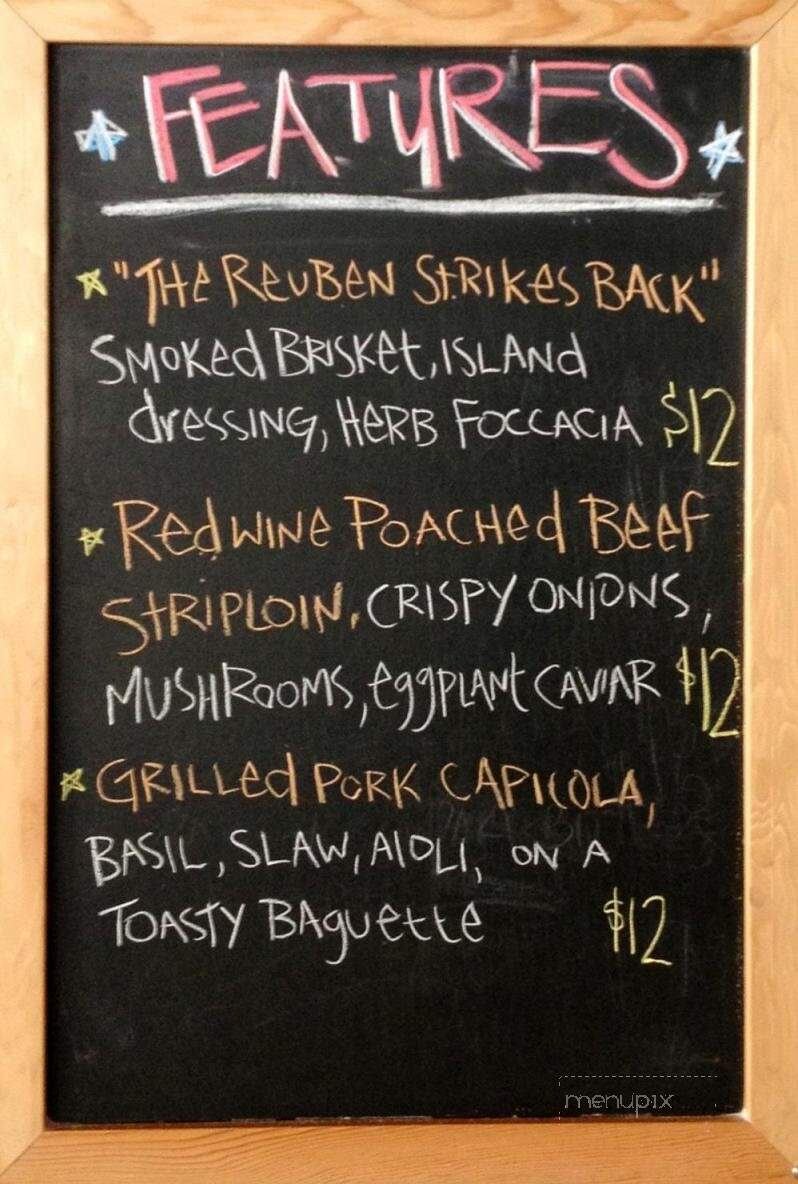 FEATURES
"THE REUBEN STRIKES BACK"
SMOKED BRISKET, ISLAND
dressing, HERB FOCCACIA $12
RED WINE POACHED BEEF
STRIPLOIN, CRISPY ONIONS,
MUSHROOMS, EGGPLANT CAVIAR $12
GRILLED PORK CAPICOLA,
BASIL, SLAW, AIOLI, ON A
TOASTY BAGUETTE $12
menupix